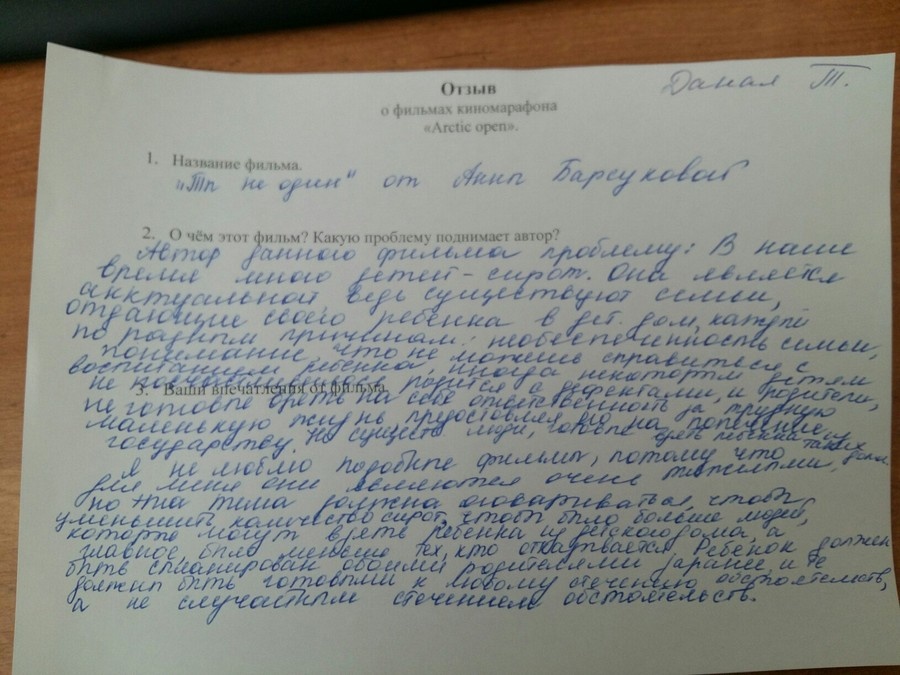 Отзыв
о фильмах киномарафона
«Arctic open».
Даная Т.
1. Название фильма.
"Ты не один" от Анны Барсуковой
2. О чём этот фильм? Какую проблему поднимает автор?
Автор данного фильма проблему: В наше
время много детей-сирот. Она является
актуальной ведь существуют семьи,
отдающие своего ребёнка в дет. дом, каждый
по разным причинам: необеспеченность семьи,
понимание, что не можешь справиться с
воспитанием ребёнка, иногда некоторым детям
не родится с дефектами, и родители,
3. Ваши впечатления от фильма.
не готовые брать на себя ответственность за трудную
маленькую жизнь, предоставляя его на попечение
государству. Но существ люди, готовые взять ребёнка из таких домов.
Я не люблю подобные фильмы, потому что
для меня они являются очень тяжёлыми,
но эта тема должна оговариваться, чтобы
уменьшить количество сирот, чтобы было больше людей,
которые могут взять ребёнка из детского дома, а
главное, было меньше тех, кто отказывается. Ребёнок должен
быть спланирован обоими родителями заранее, и те
должны быть готовыми к любому стечению обстоятельств,
а не случайным стечением обстоятельств.